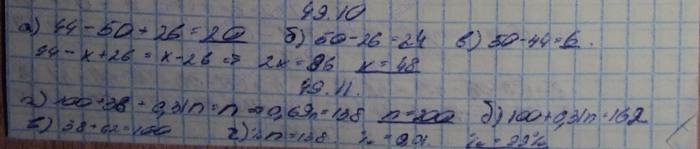 49.10
а) 44-50+26=20 б) 50-26=24 в) 50-44=6.
44-x+26=x-26 => 2x=96 x=48
49.11.
а) 100+38+0,31n=n => 0,69n=138 n=200 б) 100+0,31n=162
в) 38+62=100 г) %n=138